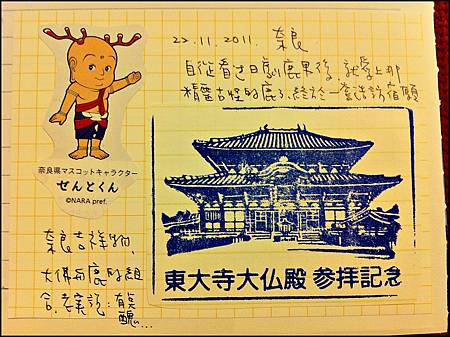 22.11.2011. 奈良
自從看过日劇鹿男後, 就愛上那
精靈古怪的鹿了, 終於一嘗造訪宿願
奈良県マスコットキャラクター
せんとくん
©NARA pref.
奈良吉祥物,
大佛與鹿的組
合, 老實說: 有
醜...
東大寺大仏殿 参拝記念